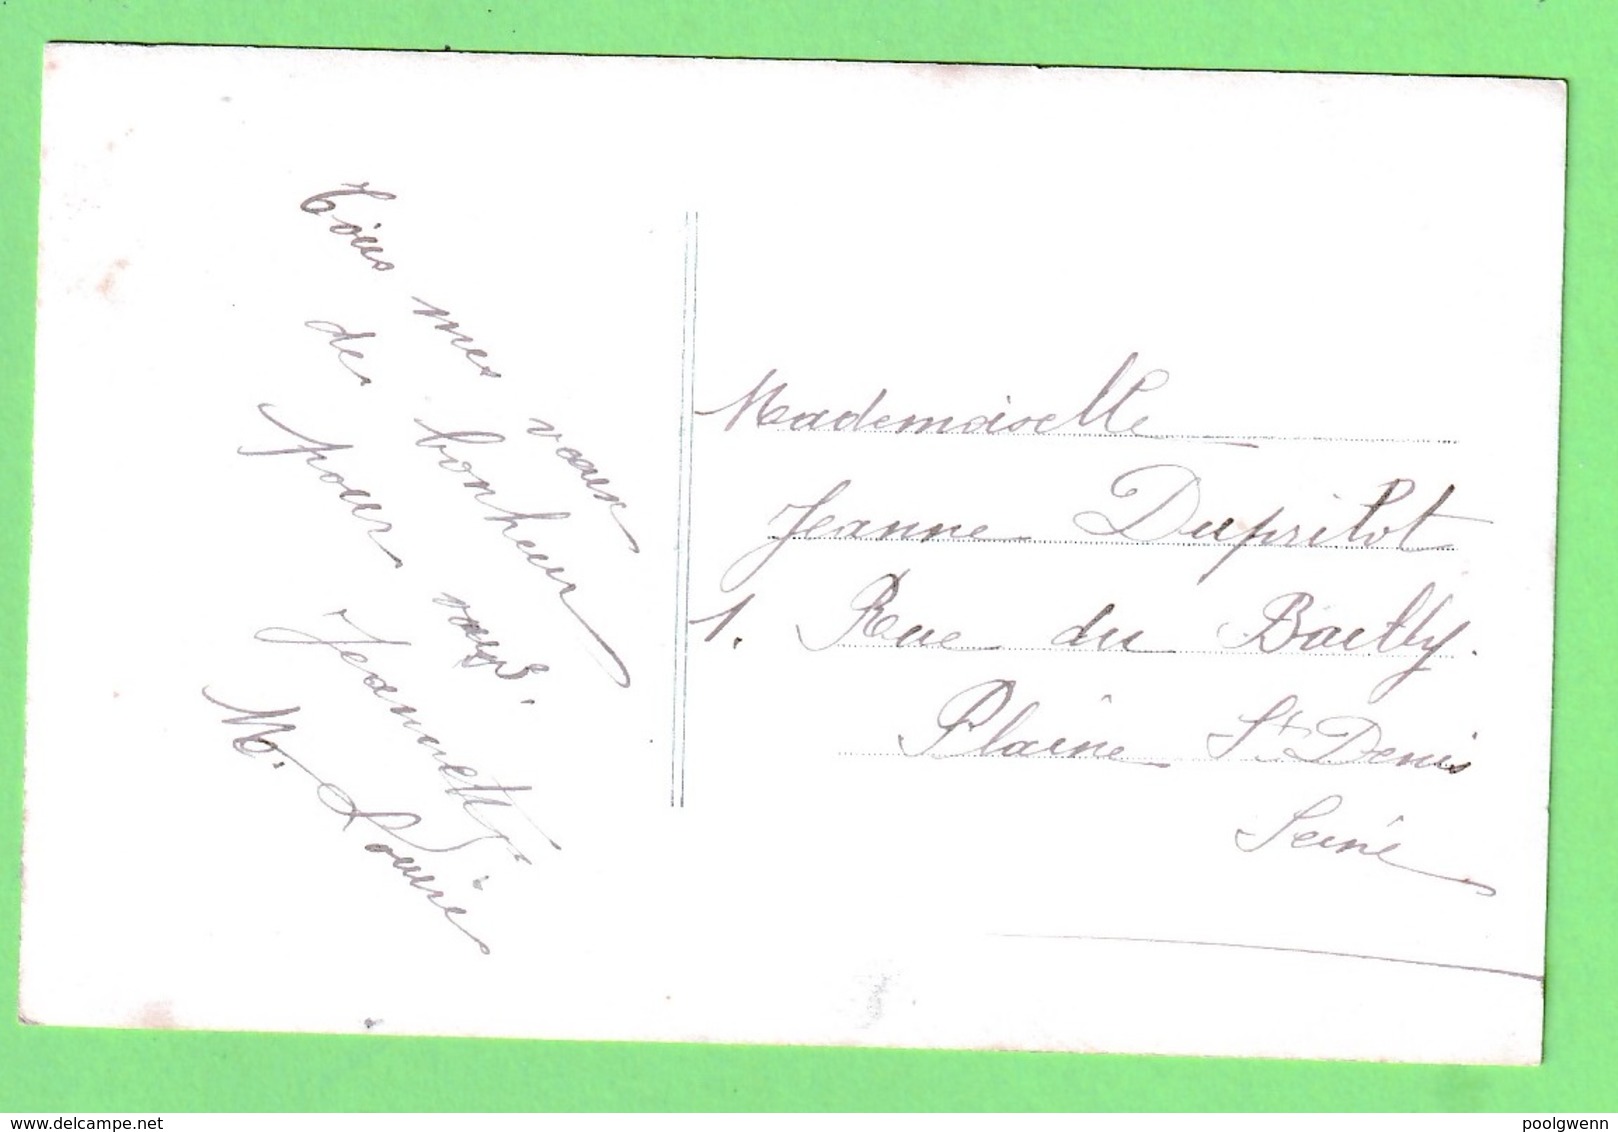 Tous mes vœux
de bonheur
pour vous.
Jeannette
M. Louise
Mademoiselle
Jeanne Duprilot
1. Rue du Bailly.
Plaine St Denis
Seine
www.delcampe.net
poolgwenn